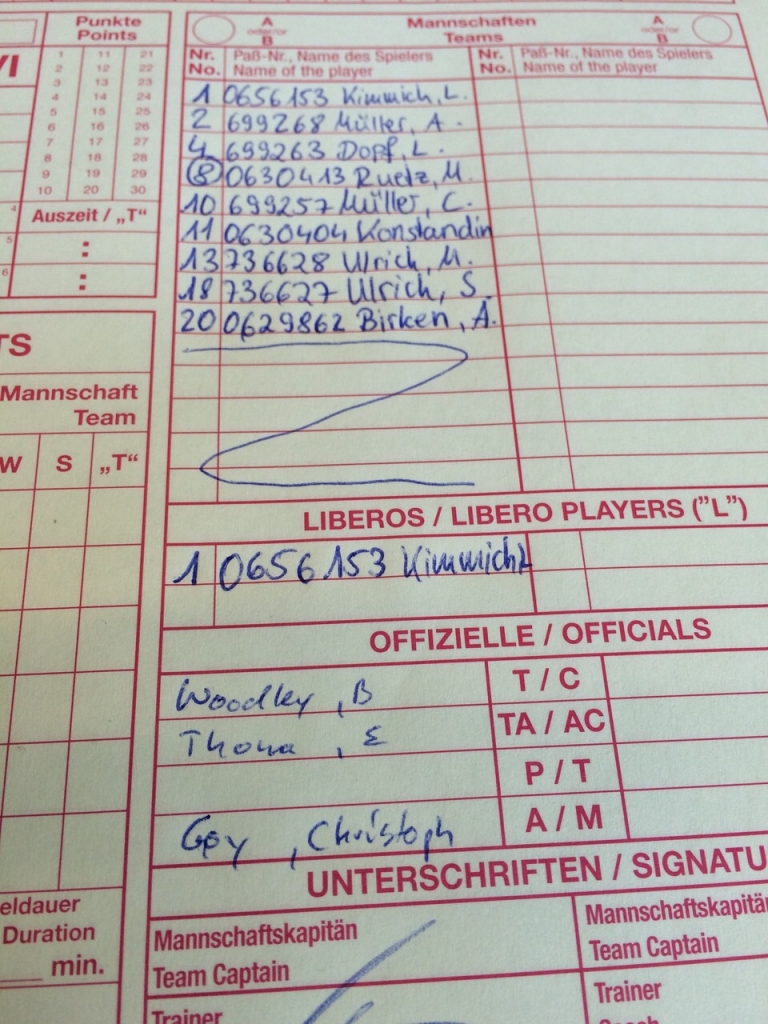 Punkte
Points
1 11 21
2 12 22
3 13 23
4 14 24
5 15 25
6 16 26
7 17 27
8 18 28
9 19 29
10 20 30
4
Auszeit / „T“
5 :
6 :
TS
Mannschaft
Team
W S „T“
eldauer
Duration
min.
A
oder/or
B
Mannschaften
Teams
A
oder/or
B
Nr. Paß-Nr., Name des Spielers Nr. Paß-Nr., Name des Spielers
No. Name of the player No. Name of the player
1 0656153 Kimmich, L.
2 699268 Müller, A.
4 699263 Dopf, L.
8 0630413 Ruetz, M.
10 699257 Müller, C.
11 0630404 Konstandin
13 736628 Ulrich, M.
18 736627 Ulrich, S.
20 0629862 Birken, A.
LIBEROS / LIBERO PLAYERS ("L")
1 0656153 Kimmich L
OFFIZIELLE / OFFICIALS
Woodley, B T / C
Thoma, E TA / AC
P / T
Gey, Christoph A / M
UNTERSCHRIFTEN / SIGNATU
Mannschaftskapitän Mannschaftskapitä
Team Captain Team Captain
Trainer Trainer